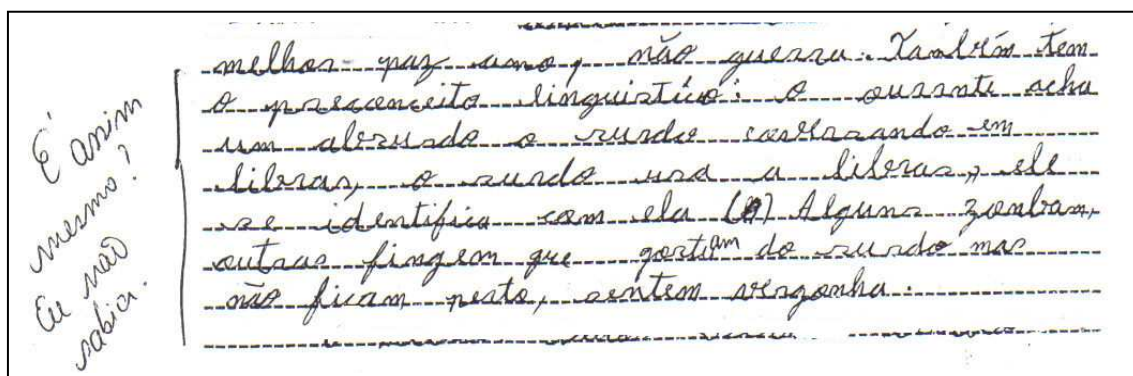 É assim
mesmo?
Eu não
sabia.
melhor paz amo, não guerra. Também tem
o preconceito linguistico: o ouvinte acha
um absurdo o surdo conversando em
libras, o surdo usa a libras, ele
se identifica com ela Alguns zonbam,
outras fingem que gostam do surdo mas
não ficam perto, sentem vergonha.